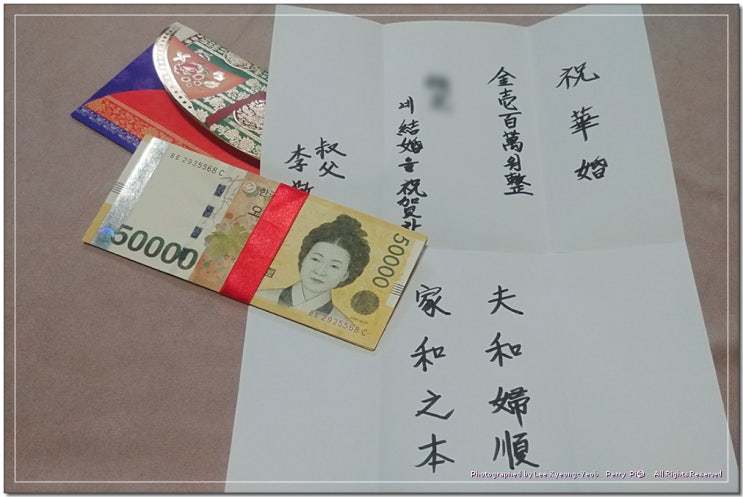 祝華婚
金壱百萬원整
結婚을 祝賀하
叔父
李
夫和婦順
家和之本
BE 2935568 C
한국
오
50000
50000
BE 2935568 C
Photographed by Lee Kyeong-Yeob. Perry Pi@ All Rights Reserved